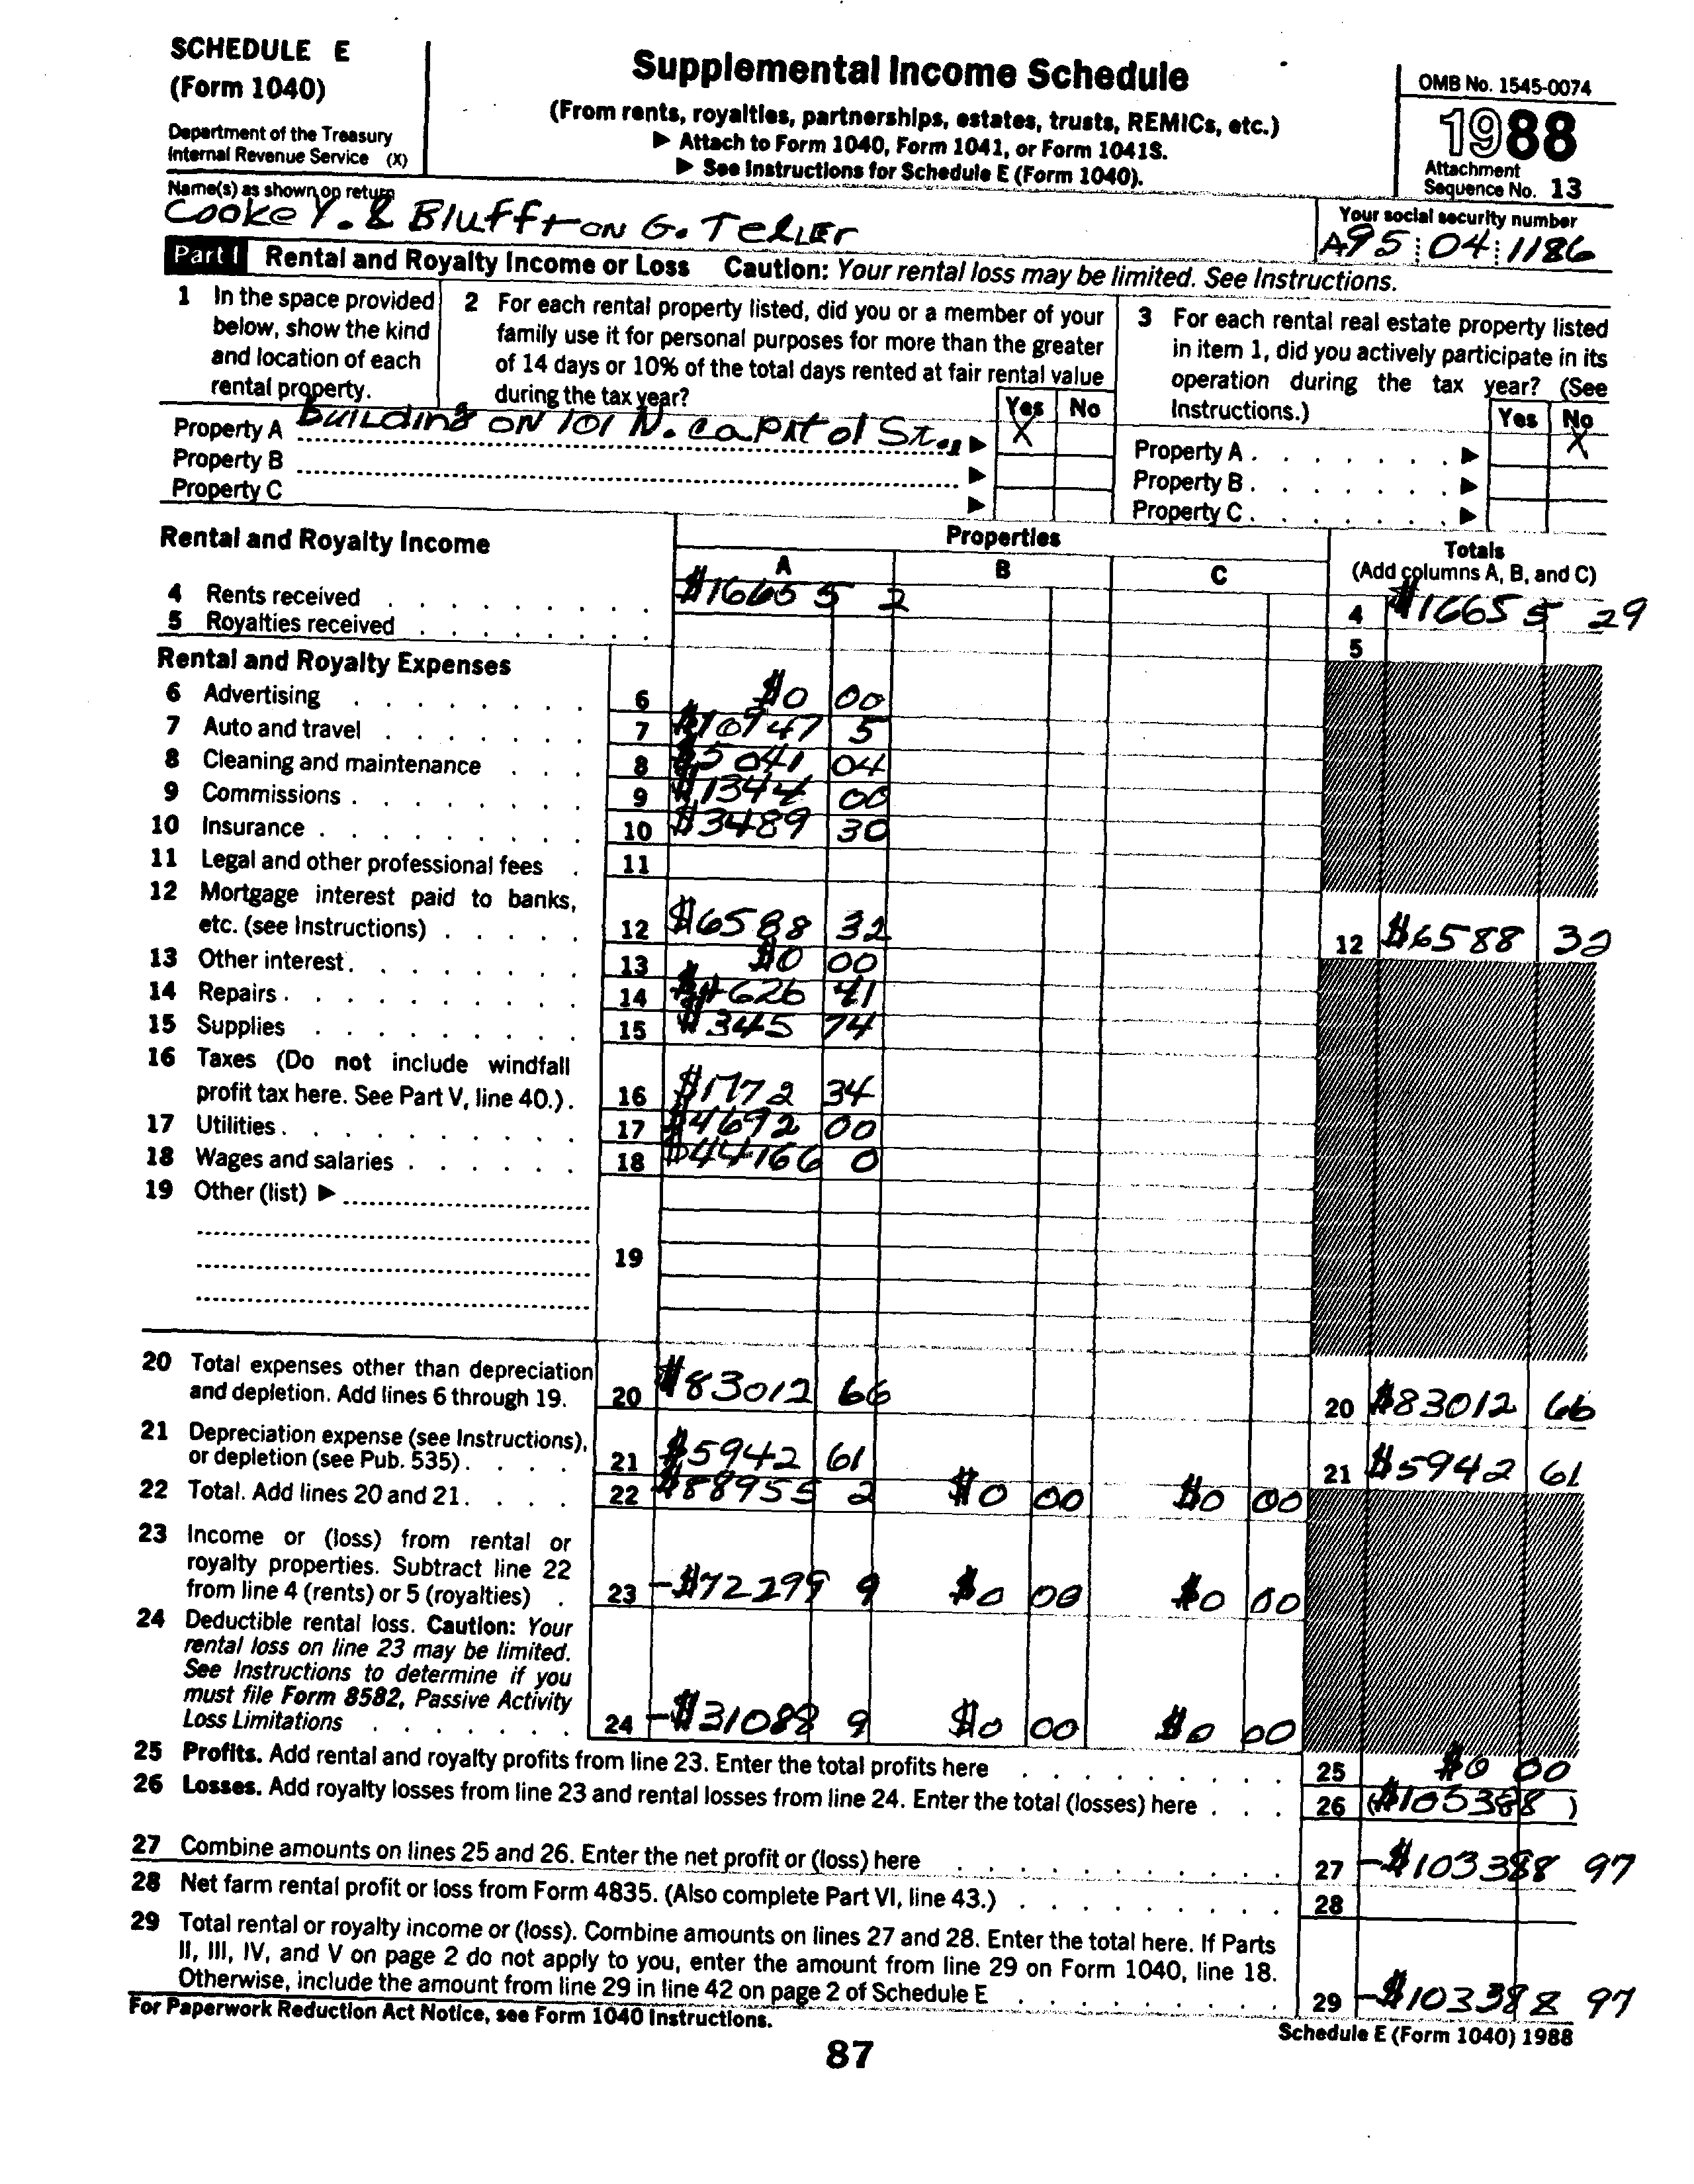 SCHEDULE E
(Form 1040)
Department of the Treasury
Internal Revenue Service (X)
Supplemental Income Schedule
(From rents, royalties, partnerships, estates, trusts, REMICs, etc.)
▶ Attach to Form 1040, Form 1041, or Form 1041S.
▶ See Instructions for Schedule E (Form 1040).
OMB No. 1545-0074
1988
Attachment
Sequence No. 13
Name(s) as shown on return
Cooke Y. & Bluffton G. Tellier
Your social security number
A95 04 1186
Part I Rental and Royalty Income or Loss Caution: Your rental loss may be limited. See Instructions.
1 In the space provided
below, show the kind
and location of each
rental property.
2 For each rental property listed, did you or a member of your
family use it for personal purposes for more than the greater
of 14 days or 10% of the total days rented at fair rental value
during the tax year?
Yes No
3 For each rental real estate property listed
in item 1, did you actively participate in its
operation during the tax year? (See
Instructions.)
Yes No
Property A Building on 101 N. Capitol St., ▶ X
Property B ▶
Property C ▶
Property A . . . . . . . ▶ X
Property B . . . . . . . ▶
Property C . . . . . . . ▶
Rental and Royalty Income
Properties
A B C
Totals
(Add columns A, B, and C)
4 Rents received $16655 2 4 $16655 29
5 Royalties received 5
Rental and Royalty Expenses
6 Advertising 6 $0 00
7 Auto and travel 7 $10747 5
8 Cleaning and maintenance 8 $5041 04
9 Commissions 9 $1344 00
10 Insurance 10 $3489 30
11 Legal and other professional fees 11
12 Mortgage interest paid to banks,
etc. (see Instructions) 12 $6588 32 12 $6588 32
13 Other interest 13 $0 00
14 Repairs 14 $4626 41
15 Supplies 15 $345 74
16 Taxes (Do not include windfall
profit tax here. See Part V, line 40.) 16 $1772 34
17 Utilities 17 $4692 00
18 Wages and salaries 18 $44166 0
19 Other (list) ▶
19
20 Total expenses other than depreciation
and depletion. Add lines 6 through 19. 20 $83012 66 20 $83012 66
21 Depreciation expense (see Instructions),
or depletion (see Pub. 535) 21 $5942 61 21 $5942 61
22 Total. Add lines 20 and 21 22 $88955 2 $0 00 $0 00
23 Income or (loss) from rental or
royalty properties. Subtract line 22
from line 4 (rents) or 5 (royalties) 23 -$72299 9 $0 00 $0 00
24 Deductible rental loss. Caution: Your
rental loss on line 23 may be limited.
See Instructions to determine if you
must file Form 8582, Passive Activity
Loss Limitations 24 -$31088 9 $0 00 $0 00
25 Profits. Add rental and royalty profits from line 23. Enter the total profits here 25 $0 00
26 Losses. Add royalty losses from line 23 and rental losses from line 24. Enter the total (losses) here 26 ($103388 )
27 Combine amounts on lines 25 and 26. Enter the net profit or (loss) here 27 -$103388 97
28 Net farm rental profit or loss from Form 4835. (Also complete Part VI, line 43.) 28
29 Total rental or royalty income or (loss). Combine amounts on lines 27 and 28. Enter the total here. If Parts
II, III, IV, and V on page 2 do not apply to you, enter the amount from line 29 on Form 1040, line 18.
Otherwise, include the amount from line 29 in line 42 on page 2 of Schedule E 29 -$103388 97
For Paperwork Reduction Act Notice, see Form 1040 Instructions.
Schedule E (Form 1040) 1988
87